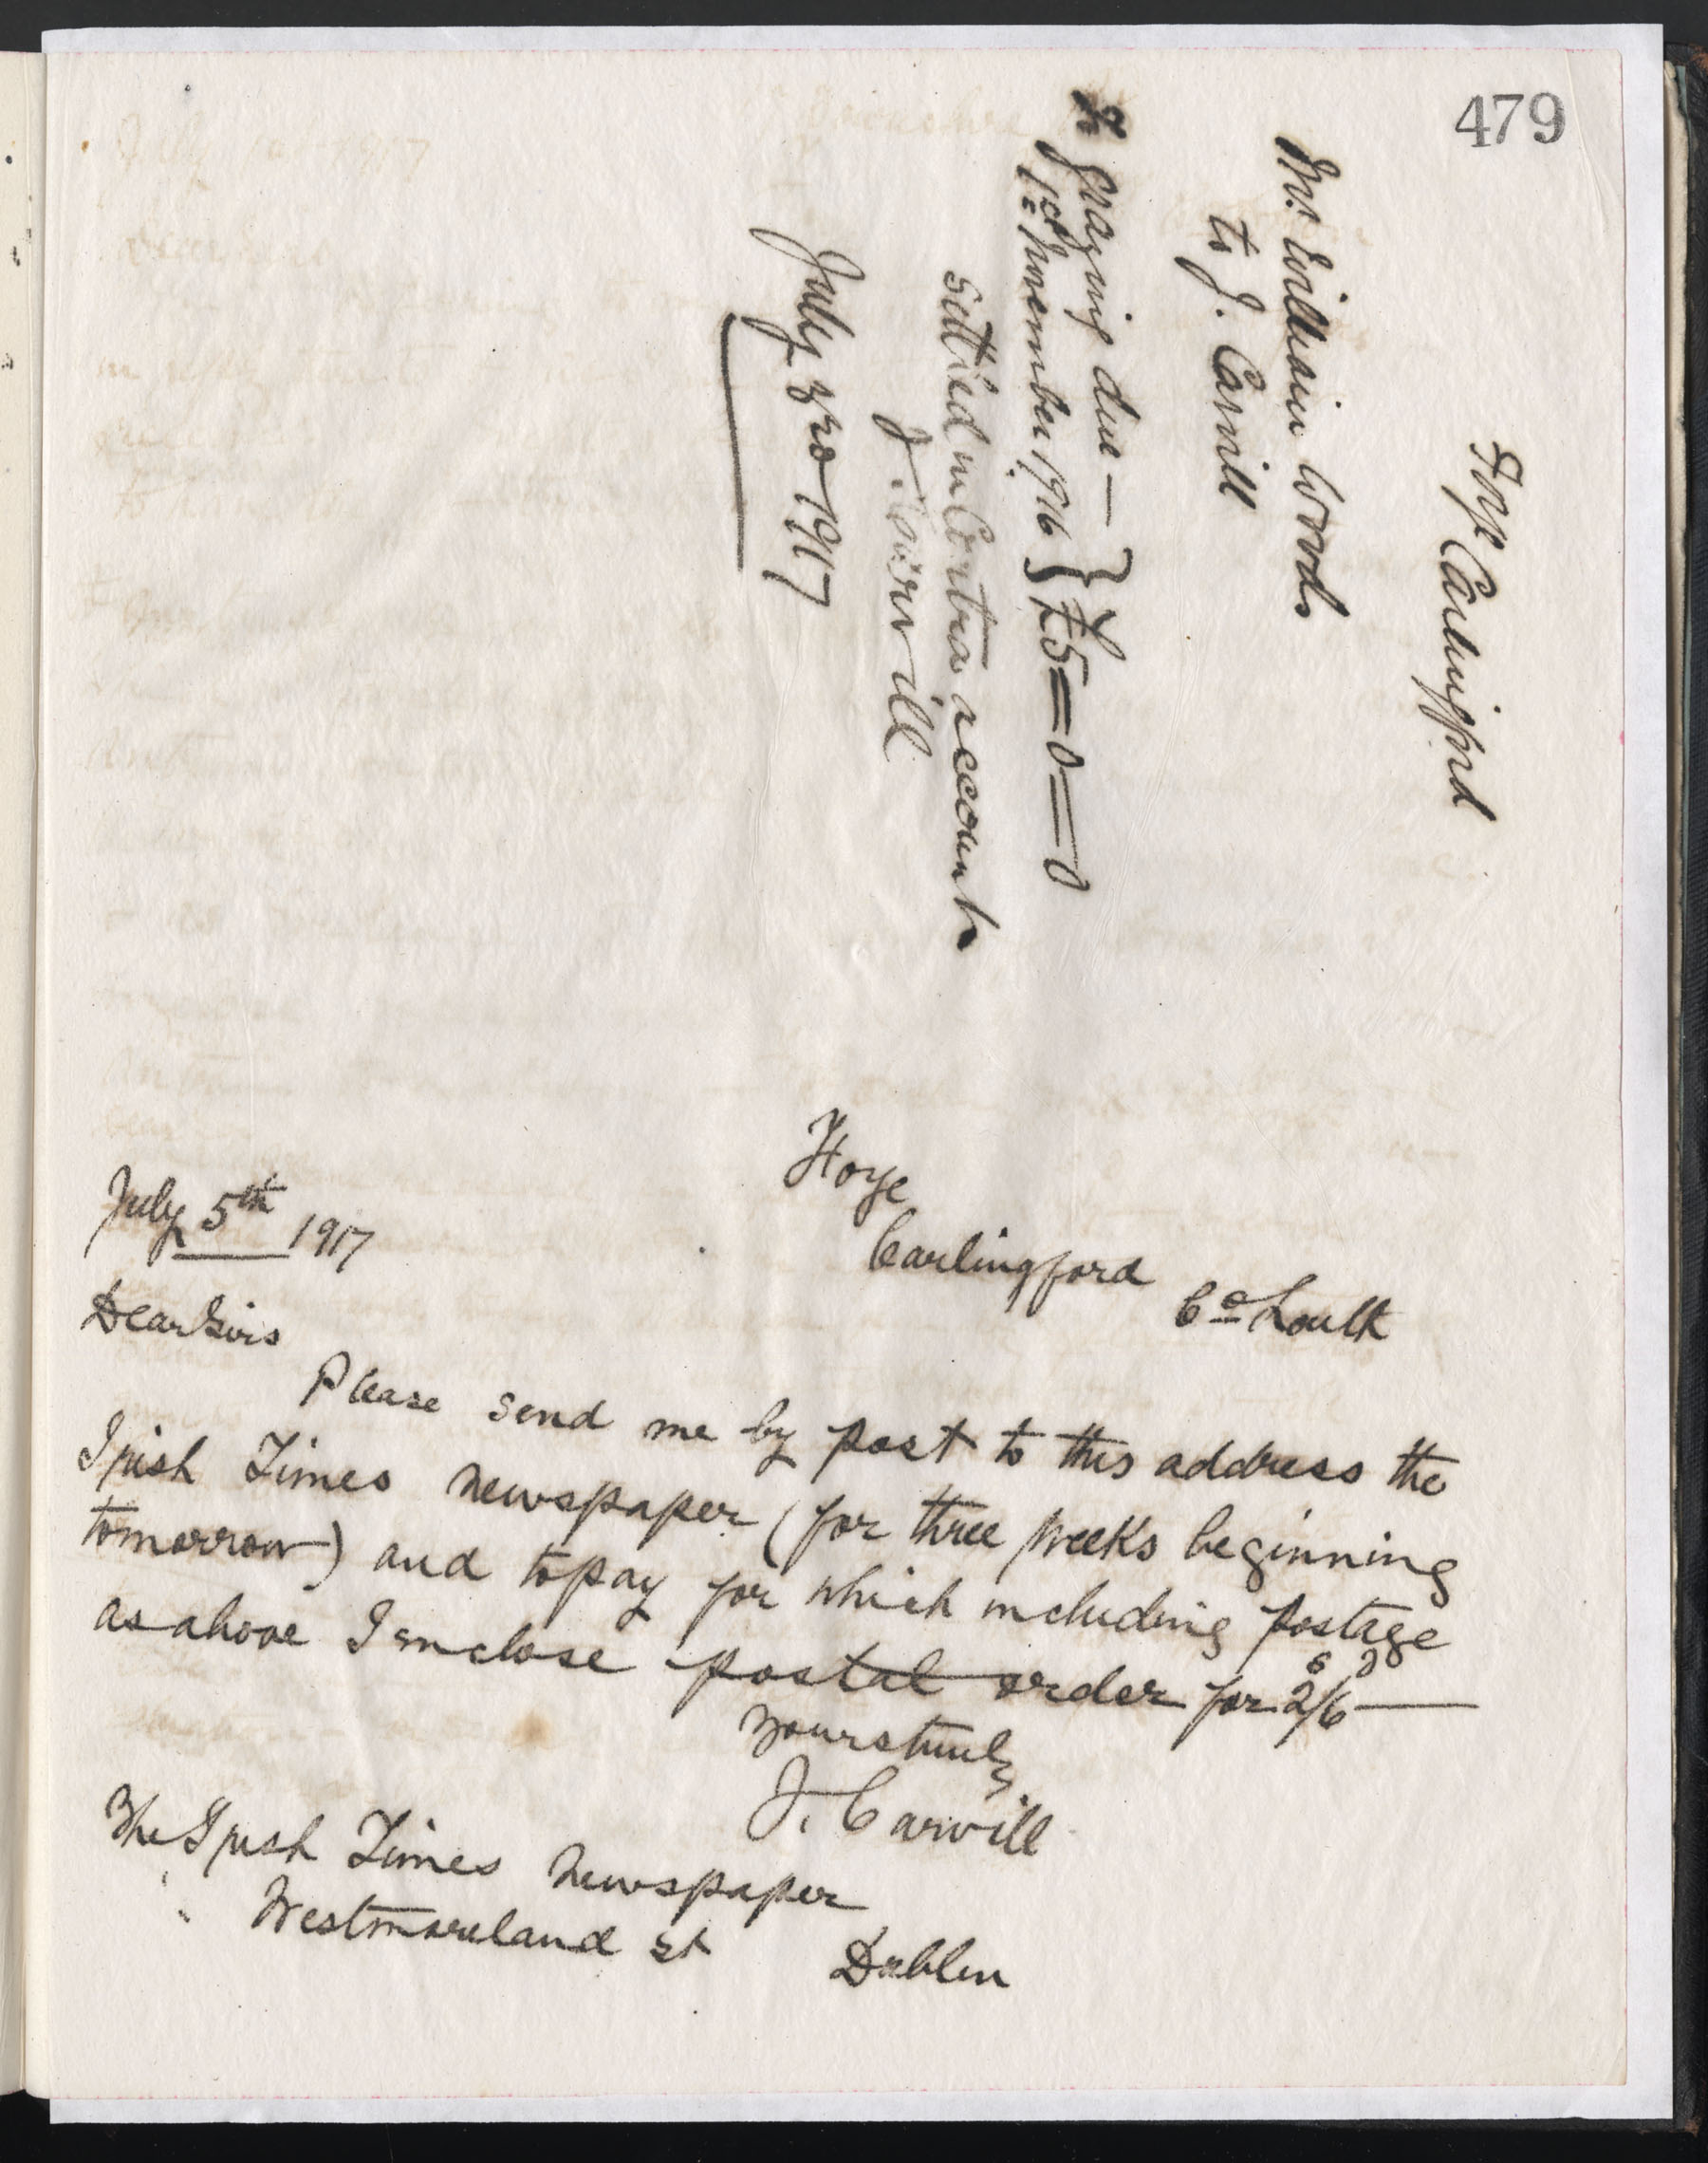 479
Foye Carlingford
Mr. William Woods
to J. Carvill
To grazing due —
1st November 1916 } £5=0=0
Settled in Contra account
J. Carvill
July 3rd 1917
Foye
Carlingford
Co Louth
July 5th 1917
Dear Sirs
Please send me by post to this address the
Irish Times newspaper (for three weeks beginning
tomorrow) and to pay for which including postage
as above I enclose postal order for 2s/6d —
Yours truly
J. Carvill
The Irish Times Newspaper
Westmoreland St Dublin